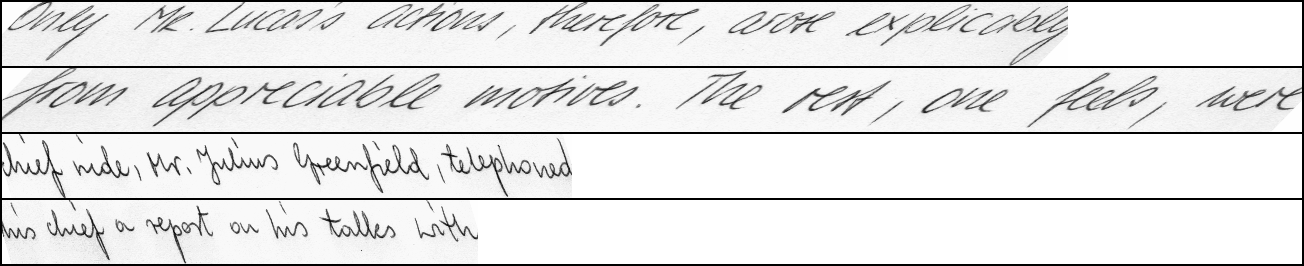 Only Mr. Lucas's actions, therefore, arose explicably
from appreciable motives. The rest, one feels, were
chief aide, Mr. Julius Greenfield, telephoned
his chief a report on his talks with